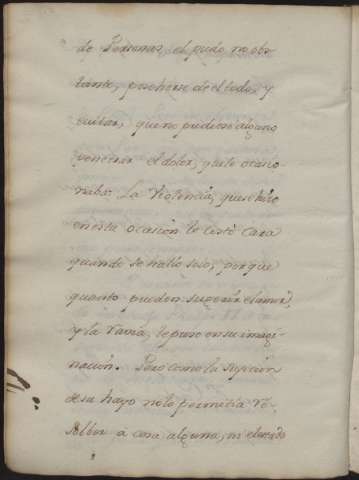 de Personas, el pudo no obs-
tante, poseherse de el todo, y
evitar, que no pudiese alguno
penetrar el dolor, que le ocasio-
naba. La violencia, que se hizo
en esta ocasion le costò cara
quando se hallò solo, porque
quanto pueden sugerir el amor,
y la ravia, le puso en su imagi-
nacion. Pero como la sujecion
de su hayo no le permitia re-
solber à cosa alguna, ni el estado